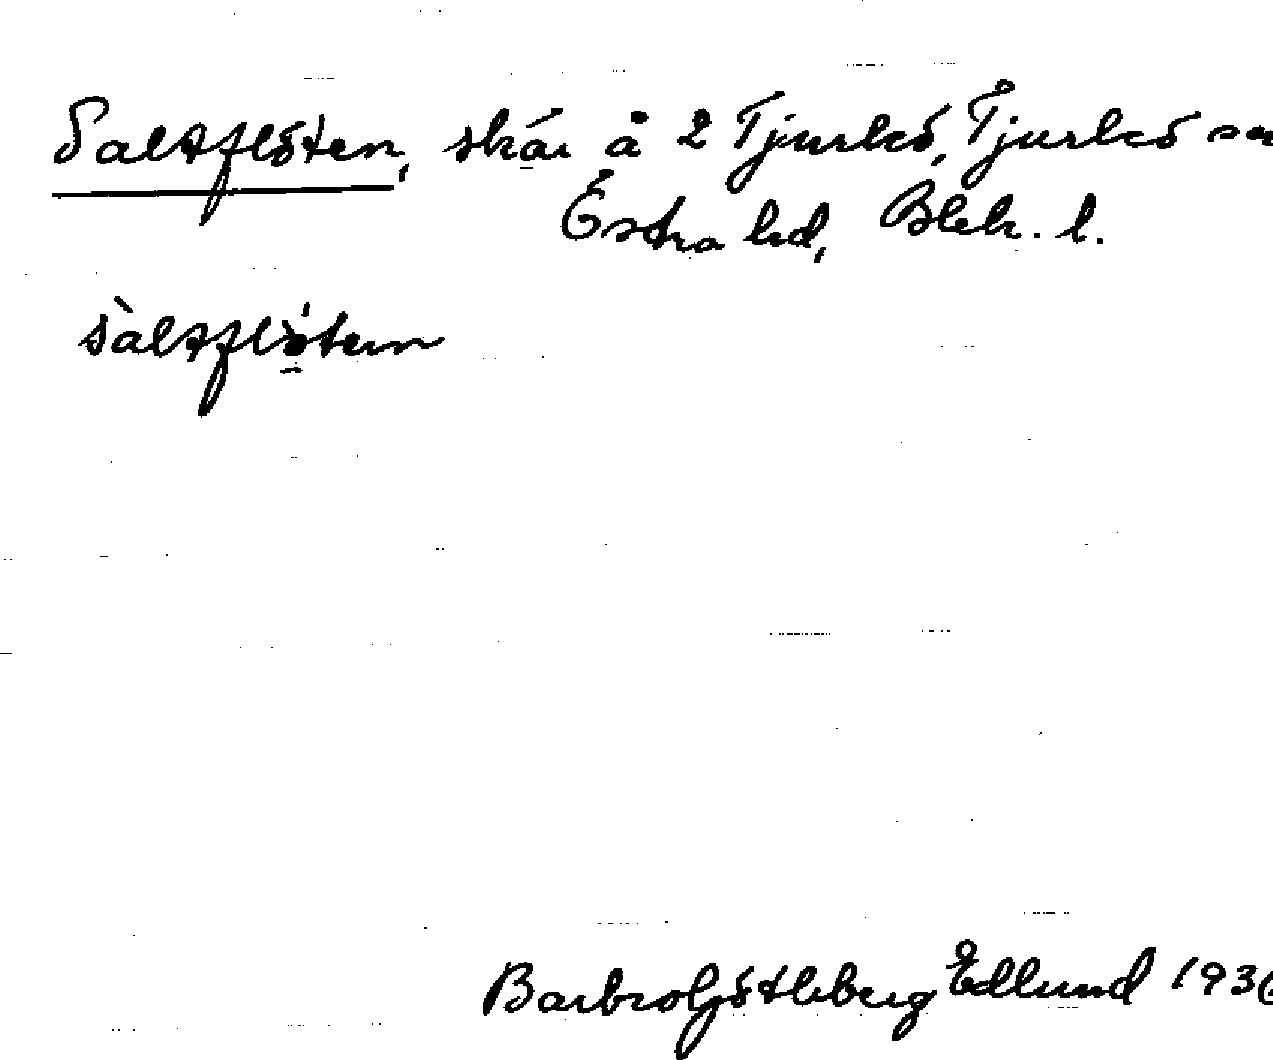 Saltflöten, skär å 2 Tjurkö, Tjurkö sn
Östra hd, Blek. l.
sàltflö́ten
Barbro Götleberg Edlund 1936